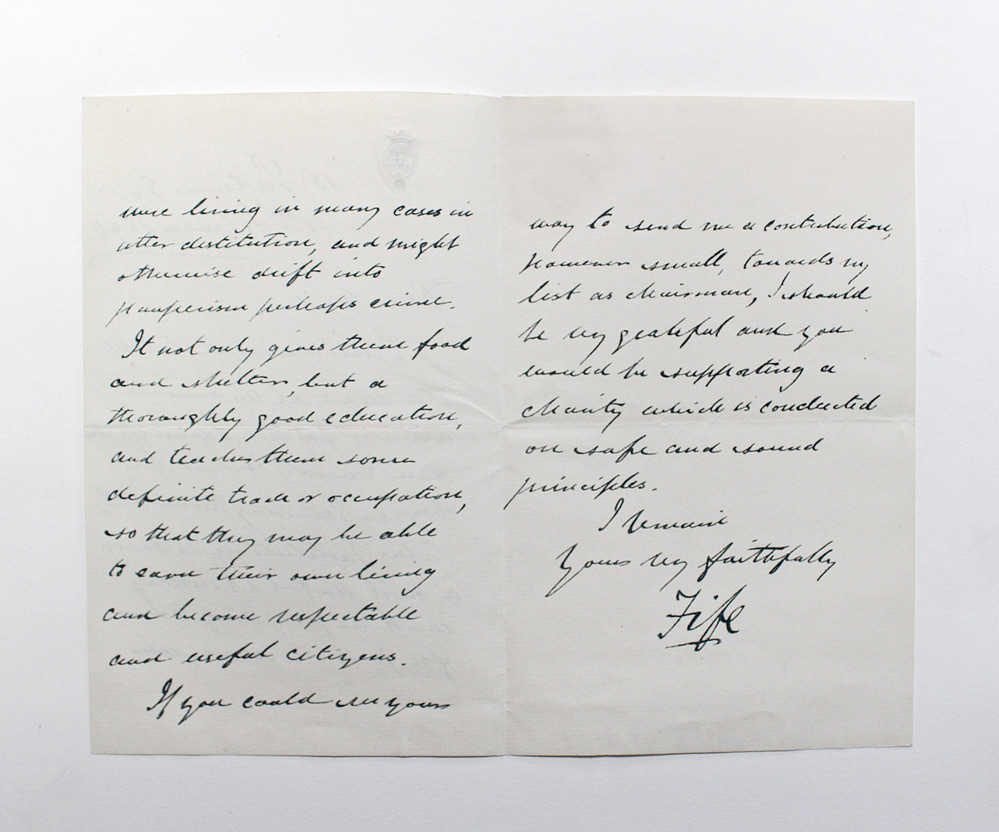 were living in many cases in
utter destitution, and might
otherwise drift into
pauperism perhaps crime.
It not only gives them food
and shelter, but a
thoroughly good education,
and teaches them some
definite trade or occupation,
so that they may be able
to earn their own living
and become respectable
and useful citizens.
If you could see your
way to send me a contribution,
however small, towards my
list as chairman, I should
be vy grateful and you
would be supporting a
charity which is conducted
on safe and sound
principles.
I remain
Yours vy faithfully
Fife